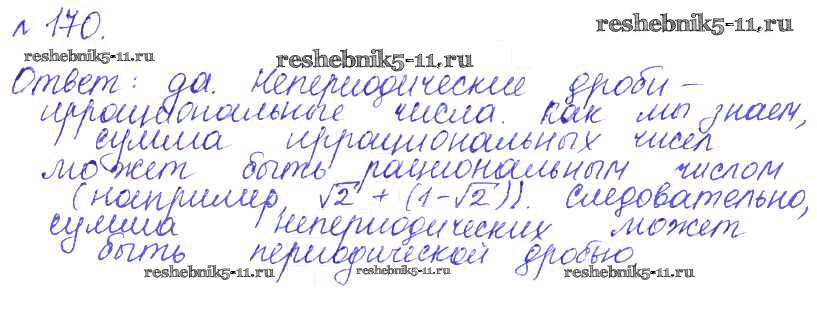 № 170.
reshebnik5-11.ru
reshebnik5-11.ru
reshebnik5-11.ru
Ответ: да. Непериодические дроби –
иррациональные числа. Как мы знаем,
сумма иррациональных чисел
может быть рациональным числом
(например, √2 + (1-√2)). Следовательно,
сумма непериодических может
быть периодической дробью
reshebnik5-11.ru
reshebnik5-11.ru
reshebnik5-11.ru